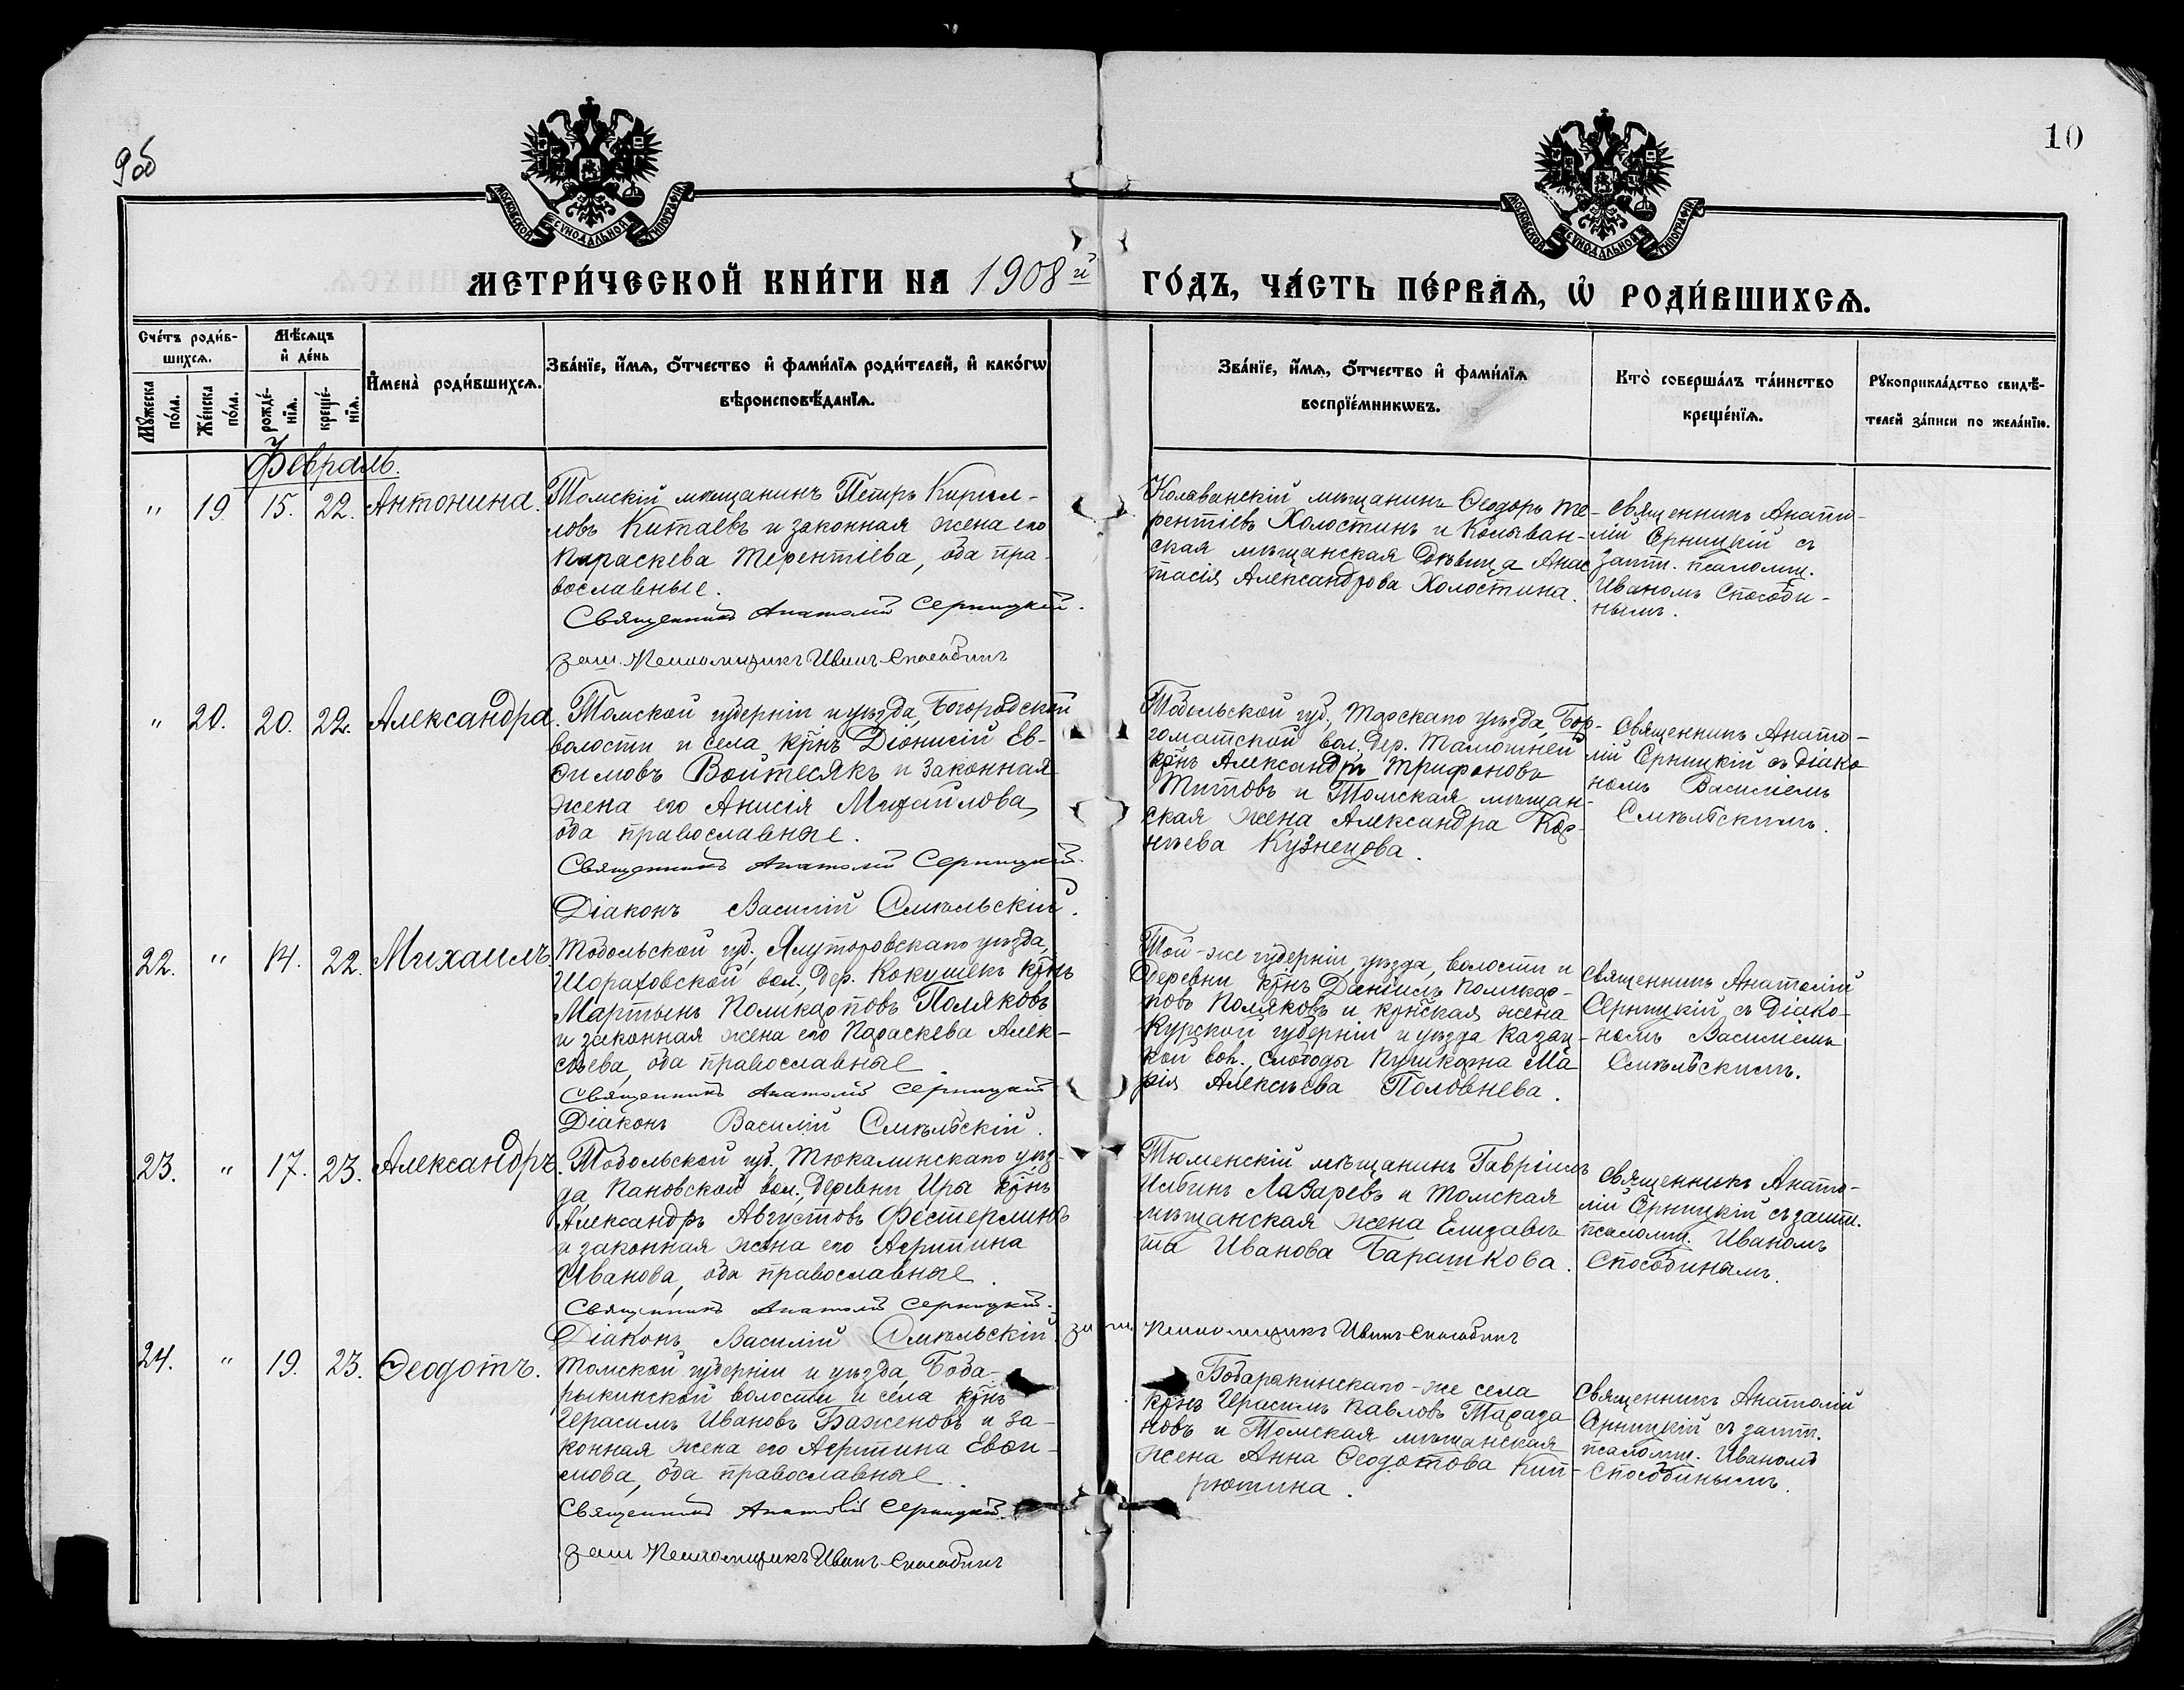 9об
10
МОСКОВСКОЙ СѴНОДАЛЬНОЙ ТИПОГРАФІИ
МОСКОВСКОЙ СѴНОДАЛЬНОЙ ТИПОГРАФІИ
МЕТРИ́ЧЕСКОЙ КНИ́ГИ НА 1908й ГО́ДЪ, ЧА́СТЬ ПЕ́РВАѦ, Ѡ РОДИ́ВШИХСѦ.
Сче́тъ роди́в-
шихсѧ.
Мѣ́сѧцъ
и҆ де́нь
Мꙋ́жеска
по́ла.
Же́нска
по́ла.
рожде́-
нїѧ.
креще́-
нїѧ.
И҆мена̀ роди́вшихсѧ.
Зва́нїе, и҆́мѧ, ѻ҆́тчество и҆ фами́лїѧ роди́телей, и҆ како́гѡ
вѣроисповѣ́данїѧ.
Зва́нїе, и҆́мѧ, ѻ҆́тчество и҆ фами́лїѧ
воспрїе́мникѡвъ.
Кто̀ соверша́лъ та́инство
креще́нїѧ.
Рꙋкоприкла́дство свидѣ́-
телей за́писи по жела́нїю.
Февраль.
" 19 15. 22. Антонина.
Томскій мѣщанинъ Петръ Кирил-
ловъ Китаевъ и законная жена его
Параскева Терентіева, оба пра-
вославные.
Священникъ Анатолій Серницкій.
заш. Псаломщикъ Иванъ Способинъ
Колыванскій мѣщанинъ Ѳеодоръ Те-
рентіевъ Холостинъ и Колыван-
ская мѣщанская дѣвица Анас
тасія Александрова Холостина.
Священникъ Анато-
лій Серницкій съ
зашт. псаломщ.
Иваномъ Способи-
нымъ.
" 20. 20. 22. Александра.
Томской губерніи и уѣзда, Богородской
волости и села кр̃нъ Діонисій Ев-
ѳимовъ Войтесякъ и законная
жена его Анисія Михайлова,
оба православные.
Священникъ Анатолій Серницкій.
Діаконъ Василій Смѣльскій.
Тобольской губ., Тарскаго уѣзда, Бер-
гоматской вол., дер.
кр̃нъ Александръ Трифоновъ
Титовъ и Томская мѣщан-
ская жена Александра Кор-
нѣева Кузнецова.
Священникъ Анато-
лій Серницкій съ діако
номъ Василіемъ
Смѣльскимъ.
22. " 14. 22. Михаилъ.
Тобольской губ., Ялуторовскаго уѣзда,
Шороховской вол., дер. Кокушекъ кр̃нъ
Мартынъ Поликарповъ Поляковъ
и законная жена его Параскева Алек-
сѣева, оба православные.
Священникъ Анатолій Серницкій
Діаконъ Василій Смѣльскій.
Той-же губерніи, уѣзда, волости и
деревни кр̃нъ Даніилъ Поликар-
повъ Поляковъ и кр̃нская жена
Курской губерніи и уѣзда Казац-
кой вол., слободы Пушкарна Ма
рія Алексѣева Половнева.
Священникъ Анатолій
Серницкій съ діако-
номъ Василіемъ
Смѣльскимъ.
23. " 17. 23. Александръ.
Тобольской губ., Тюкалинскаго уѣз-
да Пановской вол., деревни Иры кр̃нъ
Александръ Августовъ Фестерлингъ
и законная жена его Агрипина
Иванова, оба православные.
Священникъ Анатолій Серницкій.
Діаконъ Василій Смѣльскій. заш. Псаломщикъ Иванъ Способинъ
Тюменскій мѣщанинъ Гавріилъ
Ильинъ Лазаревъ и Томская
мѣщанская жена Елизаве
та Иванова Барашкова.
Священникъ Анато-
лій Серницкій съ зашт.
псаломщ. Иваномъ
Способинымъ.
24. " 19. 23. Ѳеодотъ.
Томской губерніи и уѣзда, Боба-
рыкинской волости и села кр̃нъ
Герасимъ Ивановъ Баженовъ и за-
конная жена его Агрипина Евѳи-
мова, оба православные.
Священникъ Анатолій Серницкій.
заш Псаломщикъ Иванъ Способинъ
Бобарыкинскаго-же села
кр̃нъ Герасимъ Павловъ Тараза
новъ и Томская мѣщанская
жена Анна Ѳеодотова Кип-
рюшина.
Священникъ Анатолій
Серницкій съ зашт.
псаломщ. Иваномъ
Способинымъ.